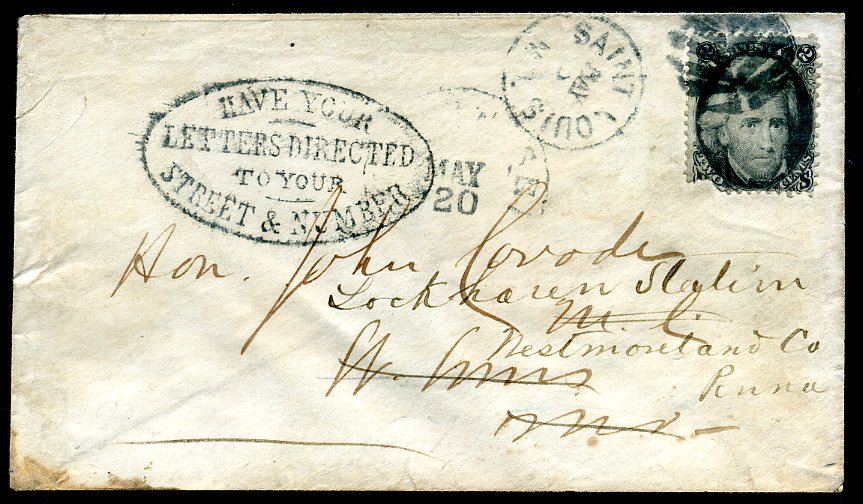 SAINT LOUIS
MAY
HAVE YOUR
LETTERS DIRECTED
TO YOUR
STREET & NUMBER
MAY
20
2 2
TWO CENTS
Hon. John Covode
Lockhaven Station
M. C.
Westmoreland Co
St. Louis
Penna
Mo.